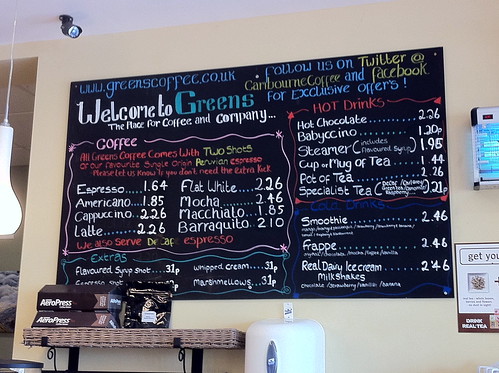 www.greenscoffee.co.uk
Follow us on Twitter @
CambourneCoffee and facebook
For Exclusive offers!
Welcome to Greens
The Place for Coffee and company...
Coffee
All Greens Coffee Comes With Two Shots
or our favourite Single Origin Peruvian espresso
Please let us know if you don't need the Extra Kick
Espresso....1.64
Americano..1.85
Cappuccino..2.26
Latte........2.26
Flat White...2.26
Mocha.......2.46
Macchiato...1.85
Barraquito..2.10
We also Serve Decaf espresso
Extras
Flavoured Syrup Shot...31p
Espresso Shot
whipped cream....31p
Marshmellows...31p
Hot Drinks
Hot Chocolate.........2.26
Babyccino..........1.20p
Steamer includes flavoured Syrup 1.95
Cup or Mug of Tea....1.44
Pot of Tea............2.26
Specialist Tea
Cold Drinks
Smoothie............2.46
Frappe..............2.46
Real Davy Icecream....2.46
Milkshakes
chocolate / strawberry / vanilla / banana
AeroPress
AeroPress
get you
DRINK
REAL TEA